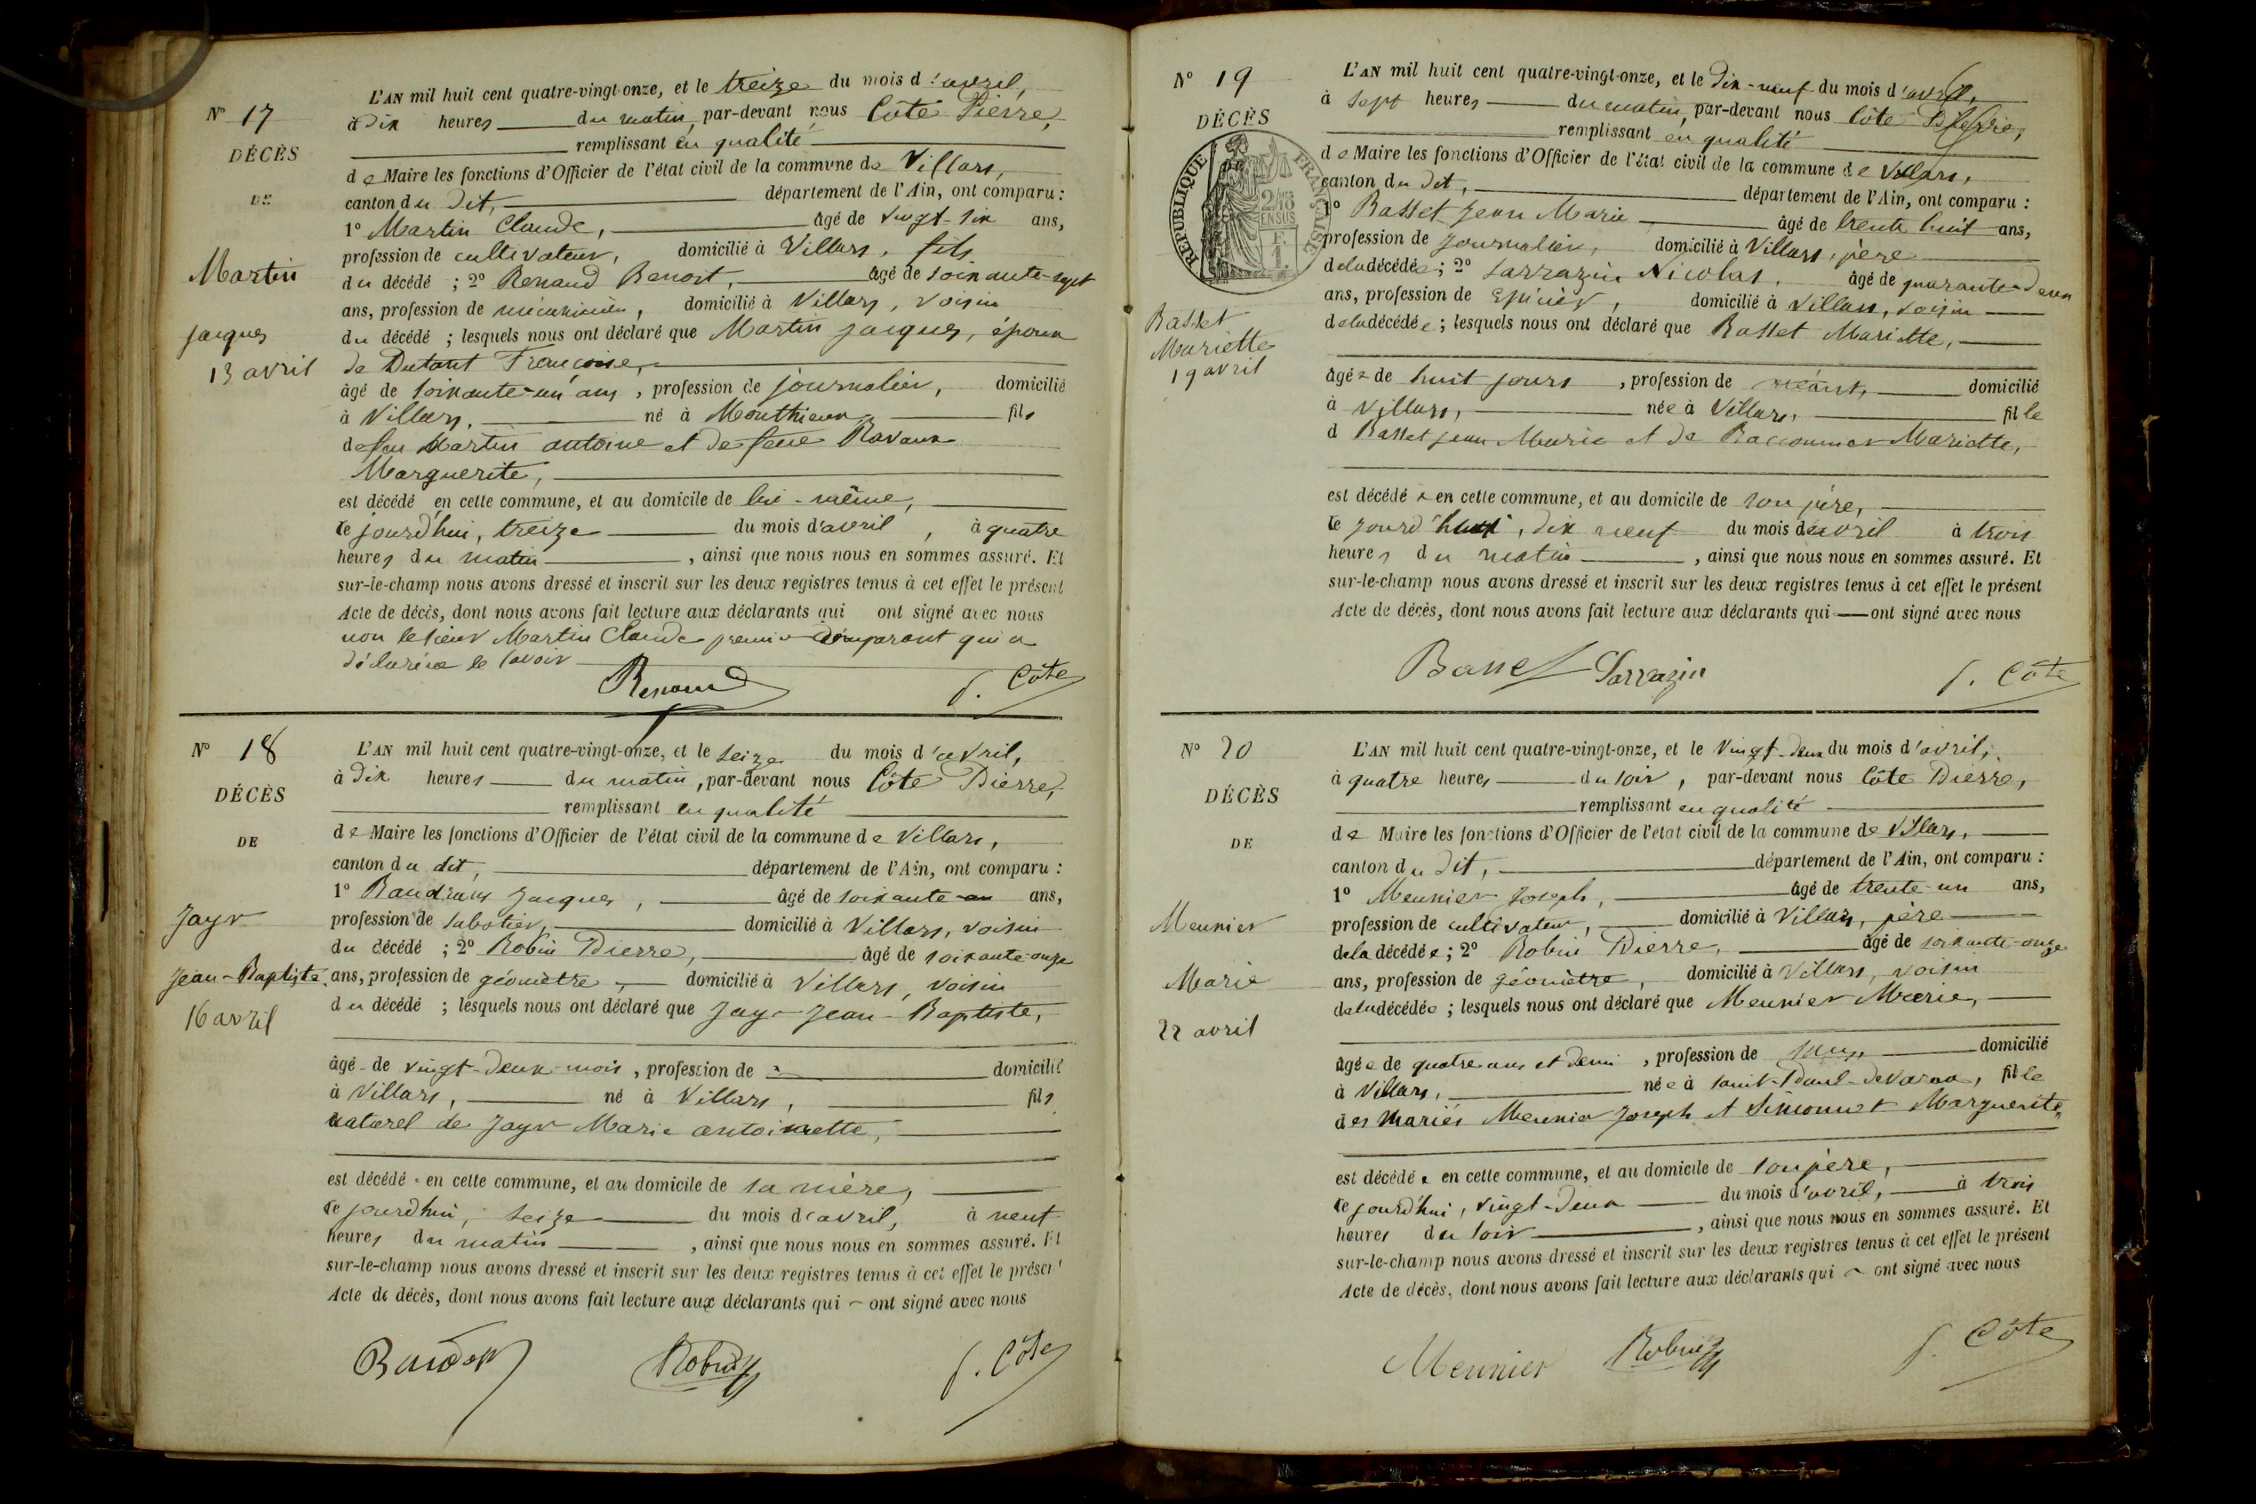 N° 17
DÉCÈS
DE
Martin
Jacques
13 avril
L'AN mil huit cent quatre-vingt-onze, et le treize du mois d'avril,
à dix heures du matin, par-devant nous Côte Pierre,
remplissant en qualité
de Maire les fonctions d'Officier de l'état civil de la commune de Villars,
canton du dit, département de l'Ain, ont comparu :
1° Martin Claude, âgé de vingt-six ans,
profession de cultivateur, domicilié à Villars, fils
du décédé ; 2° Renaud Benoit, âgé de soixante-sept
ans, profession de mécanicien, domicilié à Villars, voisin
du décédé ; lesquels nous ont déclaré que Martin Jacques, époux
de Dutant Françoise,
âgé de soixante-un ans, profession de journalier, domicilié
à Villars, né à Monthieux, fils
de feu Martin antoine et de feue Ravaux
Marguerite,
est décédé en cette commune, et au domicile de lui-même,
ce jourd'hui, treize du mois d'avril, à quatre
heures du matin, ainsi que nous nous en sommes assuré. Et
sur-le-champ nous avons dressé et inscrit sur les deux registres tenus à cet effet le présent
Acte de décès, dont nous avons fait lecture aux déclarants qui ont signé avec nous
non le sieur Martin Claude premier comparant qui a
déclaré ne le savoir
Renaud P. Côte
N° 18
DÉCÈS
DE
Jayr
Jean-Baptiste
16 avril
L'AN mil huit cent quatre-vingt-onze, et le seize du mois d'avril,
à dix heures du matin, par-devant nous Côte Pierre,
remplissant en qualité
de Maire les fonctions d'Officier de l'état civil de la commune de Villars,
canton du dit, département de l'Ain, ont comparu :
1° Jacques, âgé de soixante-un ans,
profession de sabotier, domicilié à Villars, voisin
du décédé ; 2° Robin Pierre, âgé de soixante-onze
ans, profession de géomètre, domicilié à Villars, voisin
du décédé ; lesquels nous ont déclaré que Jayr Jean-Baptiste,
âgé de vingt-deux mois, profession de domicilié
à Villars, né à Villars, fils
naturel de Jayr Marie antoinette,
est décédé en cette commune, et au domicile de sa mère,
ce jourd'hui, seize du mois d'avril, à neuf
heures du matin, ainsi que nous nous en sommes assuré. Et
sur-le-champ nous avons dressé et inscrit sur les deux registres tenus à cet effet le présent
Acte de décès, dont nous avons fait lecture aux déclarants qui ont signé avec nous
Robin P. Côte
N° 19
DÉCÈS
RÉPUBLIQUE FRANÇAISE
2/10 EN SUS
F. 1.
Basset
Mariette
19 avril
L'AN mil huit cent quatre-vingt-onze, et le dix-neuf du mois d'avril,
à sept heures du matin, par-devant nous Côte Pierre,
remplissant en qualité
de Maire les fonctions d'Officier de l'état civil de la commune de Villars,
canton du dit, département de l'Ain, ont comparu :
1° Basset Jean Marie âgé de trente huit ans,
profession de journalier, domicilié à Villars, père
de la décédée ; 2° Sarrazin Nicolas, âgé de quarante-deux
ans, profession de Epicier, domicilié à Villars, voisin
de la décédée ; lesquels nous ont déclaré que Basset Mariette,
âgée de huit jours, profession de néant, domicilié
à Villars, née à Villars, fille
d Basset Jean Marie et de Mariette,
est décédée en cette commune, et au domicile de son père,
ce jourd'hui, dix neuf du mois d'avril à trois
heures du matin, ainsi que nous nous en sommes assuré. Et
sur-le-champ nous avons dressé et inscrit sur les deux registres tenus à cet effet le présent
Acte de décès, dont nous avons fait lecture aux déclarants qui ont signé avec nous
Basset Sarrazin P. Côte
N° 20
DÉCÈS
DE
Meunier
Marie
22 avril
L'AN mil huit cent quatre-vingt-onze, et le vingt-deux du mois d'avril,
à quatre heures du soir, par-devant nous Côte Pierre,
remplissant en qualité
de Maire les fonctions d'Officier de l'état civil de la commune de Villars,
canton du dit, département de l'Ain, ont comparu :
1° Meunier Joseph, âgé de trente-un ans,
profession de cultivateur, domicilié à Villars, père
de la décédée ; 2° Robin Pierre, âgé de soixante-onze
ans, profession de géomètre, domicilié à Villars, voisin
de la décédée ; lesquels nous ont déclaré que Meunier Marie,
âgée de quatre ans et demi, profession de sans domicilié
à Villars, née à saint-Paul-de Varax, fille
des mariés Meunier Joseph et Simonnet Marguerite,
est décédée en cette commune, et au domicile de son père,
ce jourd'hui, vingt-deux du mois d'avril, à trois
heures du soir, ainsi que nous nous en sommes assuré. Et
sur-le-champ nous avons dressé et inscrit sur les deux registres tenus à cet effet le présent
Acte de décès, dont nous avons fait lecture aux déclarants qui ont signé avec nous
Meunier Robin P. Côte